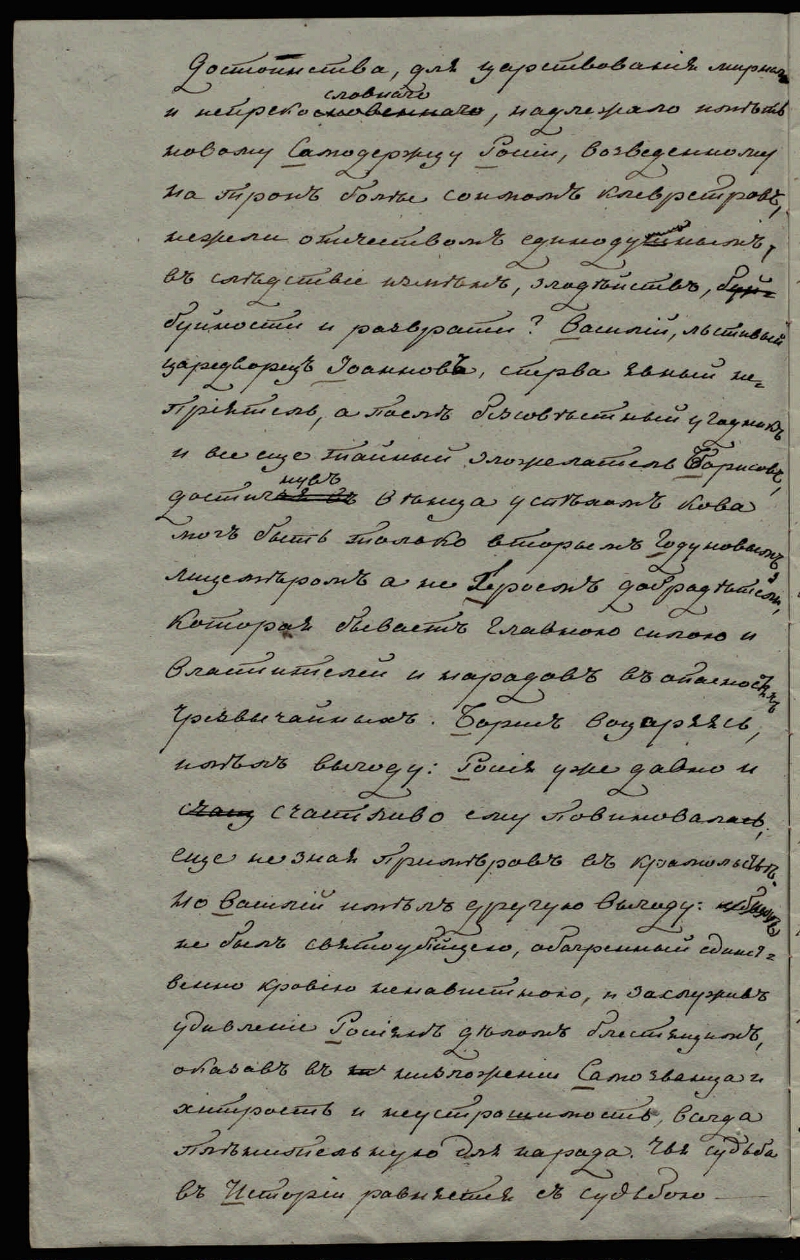 Достоинства, для царствованія мирнаго
словнаго
и непрекосновеннаго, надлежало имѣть
новому Самодержцу Росіи, возведенному
на тронъ болѣе сонмомъ клевретровъ,
нежели отечествомъ единодушнымъ,
въ слѣдствіе измѣнъ, злодѣйствъ, буй-
буйности и разврата? Василій, льстивый
царедворецъ Іоанновъ, сперва явный не-
пріятель, а послѣ безсовѣстный угодникъ
и все еще тайный зложелатель Борисовъ,
нувъ
достигая въ вѣнца успѣхомъ кова
могъ быть только вторымъ Годуновымъ,
лицемѣромъ а не Героемъ добрадѣтели,
которая бываетъ главною силою и
властителей и народовъ въ опасностяхъ
чрезвычайныхъ. Борисъ воцаряясь,
имѣлъ выгоду: Росія уже давно и
счаст счастливо ему повиновалась,
еще не зная примѣровъ въ крамольствѣ.
Но Василій имѣлъ другую выгоду:
не былъ святоубійцею, обагренный единст-
венно кровію ненавистною, и заслуживъ
удивленіе Росіянъ дѣломъ блестящимъ,
оказавъ въ низложеніи Самозванца и
хитрость и неустрашимость, всегда
плѣнительную для народа. Чья судьба
въ Исторіи равняется съ судьбою